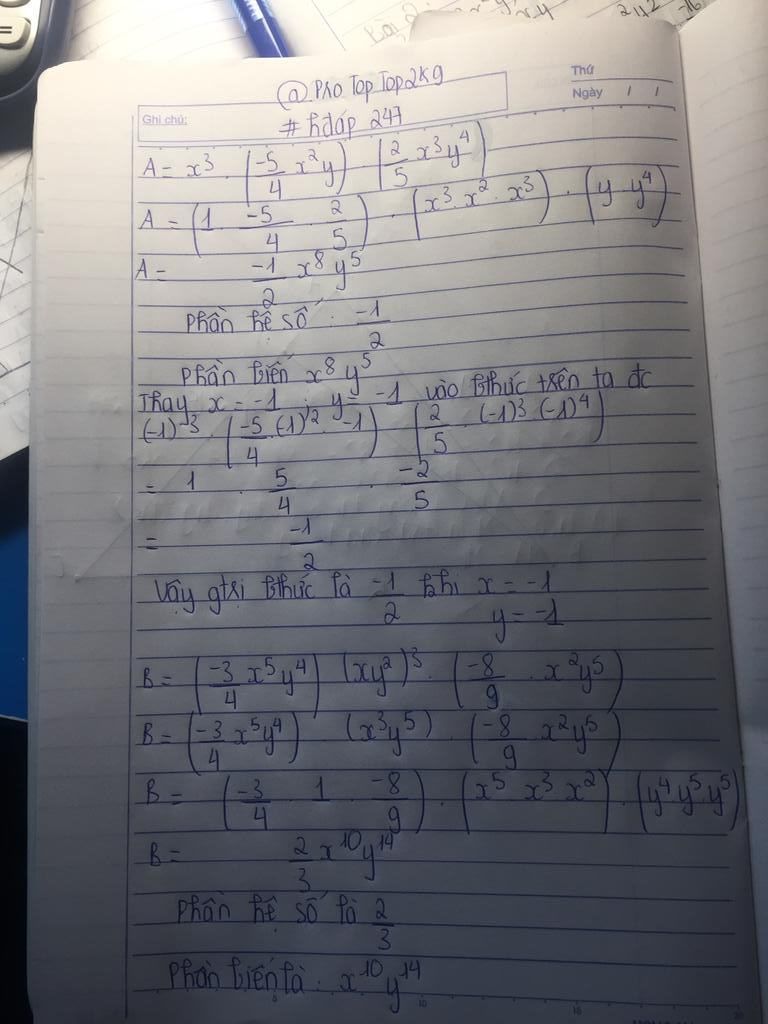 @ Pro Top Top2k9
Thứ
Ngày / /
Ghi chú:
# hđáp 247
A = x³ · (-5/4 x²y) · (2/5 x³y⁴)
A = (1 · -5/4 · 2/5) · (x³ · x² · x³) · (y · y⁴)
A = -1/2 x⁸ y⁵
Phần hệ số : -1/2
Phần biến x⁸ y⁵
Thay x = -1 ; y = -1 vào bthức trên ta đc
(-1)³ · (-5/4 · (-1)² · -1) · (2/5 · (-1)³ · (-1)⁴)
= 1 · 5/4 · -2/5
= -1/2
Vậy gtrị bthức là -1/2 khi x = -1
y = -1
B = (-3/4 x⁵y⁴) (xy²)³ · (-8/9 · x²y⁵)
B = (-3/4 x⁵y⁴) (x³y⁵) · (-8/9 x²y⁵)
B = (-3/4 · 1 · -8/9) · (x⁵ x³ x²) · (y⁴ y⁵ y⁵)
B = 2/3 x¹⁰y¹⁴
Phần hệ số là 2/3
Phần biến là : x¹⁰y¹⁴